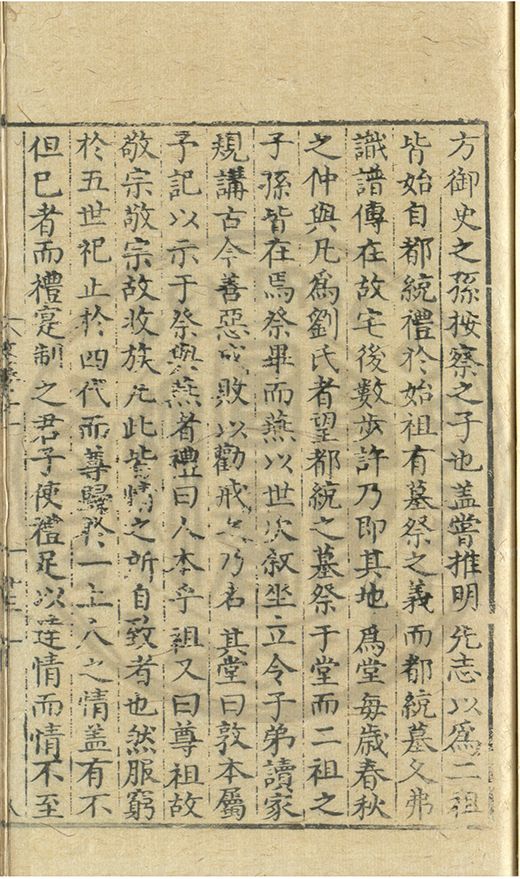 方御史之孫按察之子也盖嘗推明 先志以爲二祖
皆始自都統禮於始祖有墓祭之義而都統墓又弗
識譜傳在故宅後數步許乃即其地爲堂每歲春秋
之仲與凡爲劉氏者望都統之墓祭于堂而二祖之
子孫皆在焉祭畢而燕以世次敘坐立令子弟讀家
規講古今善惡成敗以勸戒之乃名其堂曰敦本屬
予記以示于祭與燕者禮曰人本乎祖又曰尊祖故
敬宗敬宗故收族凡此皆情之所自致者也然服窮
於五世祀止於四代而尊歸於一上人之情盖有不
但已者而禮寔制之君子使禮足以達情而情不至